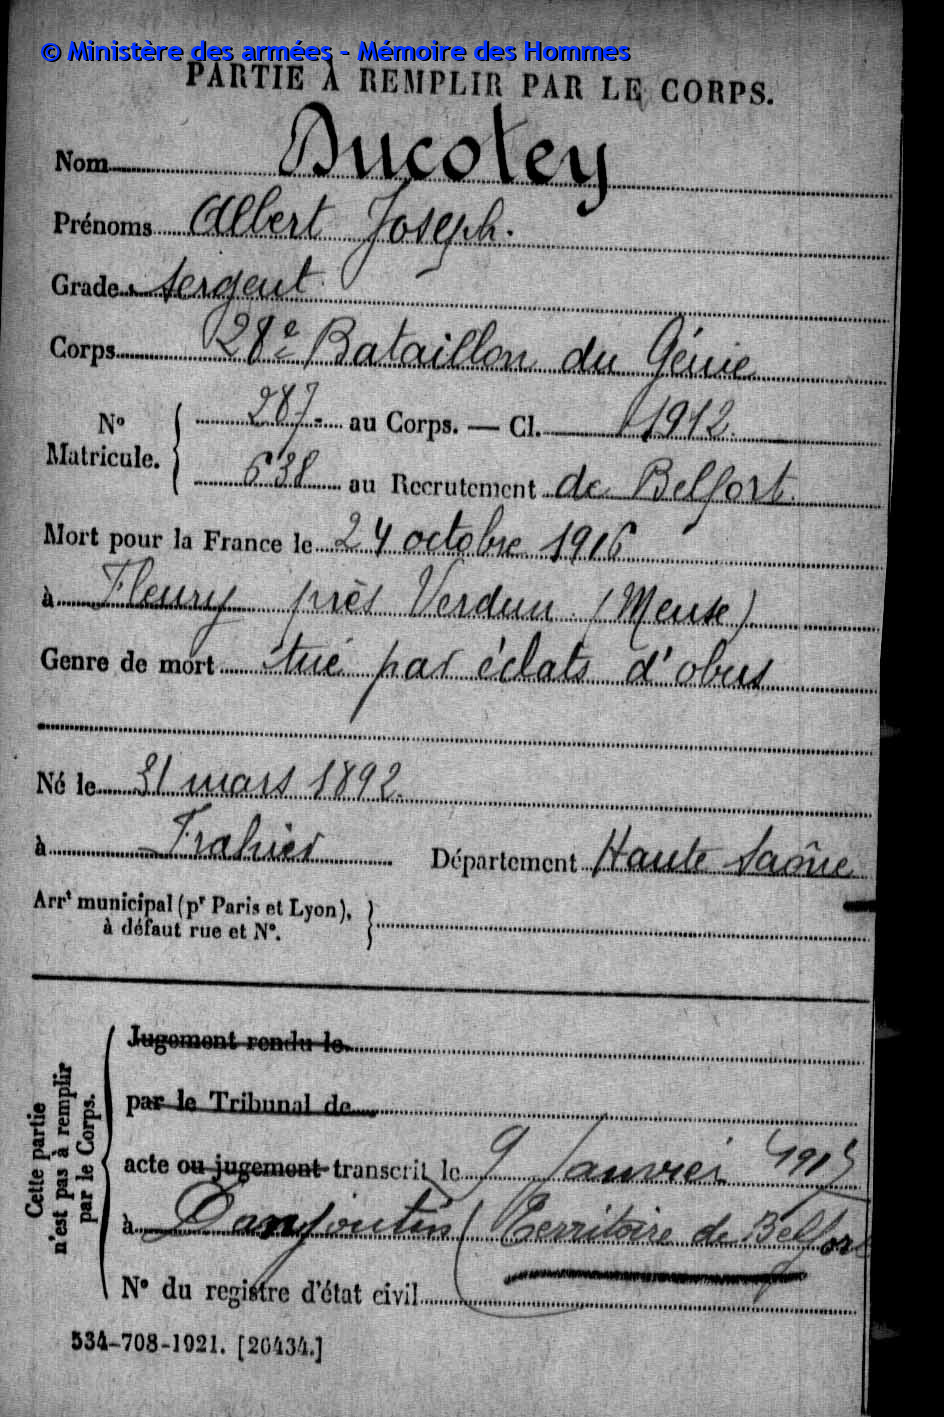 © Ministère des armées - Mémoire des Hommes
PARTIE À REMPLIR PAR LE CORPS.
Nom Ducotey
Prénoms Albert Joseph.
Grade Sergent
Corps 28e Bataillon du Génie
No Matricule. 287 au Corps. — Cl. 1912
638 au Recrutement de Belfort
Mort pour la France le 24 octobre 1916
à Fleury près Verdun (Meuse)
Genre de mort tué par éclats d'obus
Né le 31 mars 1892
à Frahier Département Haute Saône
Arrt municipal (pr Paris et Lyon),
à défaut rue et No.
Cette partie
n'est pas à remplir
par le Corps.
Jugement rendu le
par le Tribunal de
acte ou jugement transcrit le 9 Janvier
à Danjoutin (Territoire de Belfort
No du registre d'état civil
534-708-1921. [26434.]